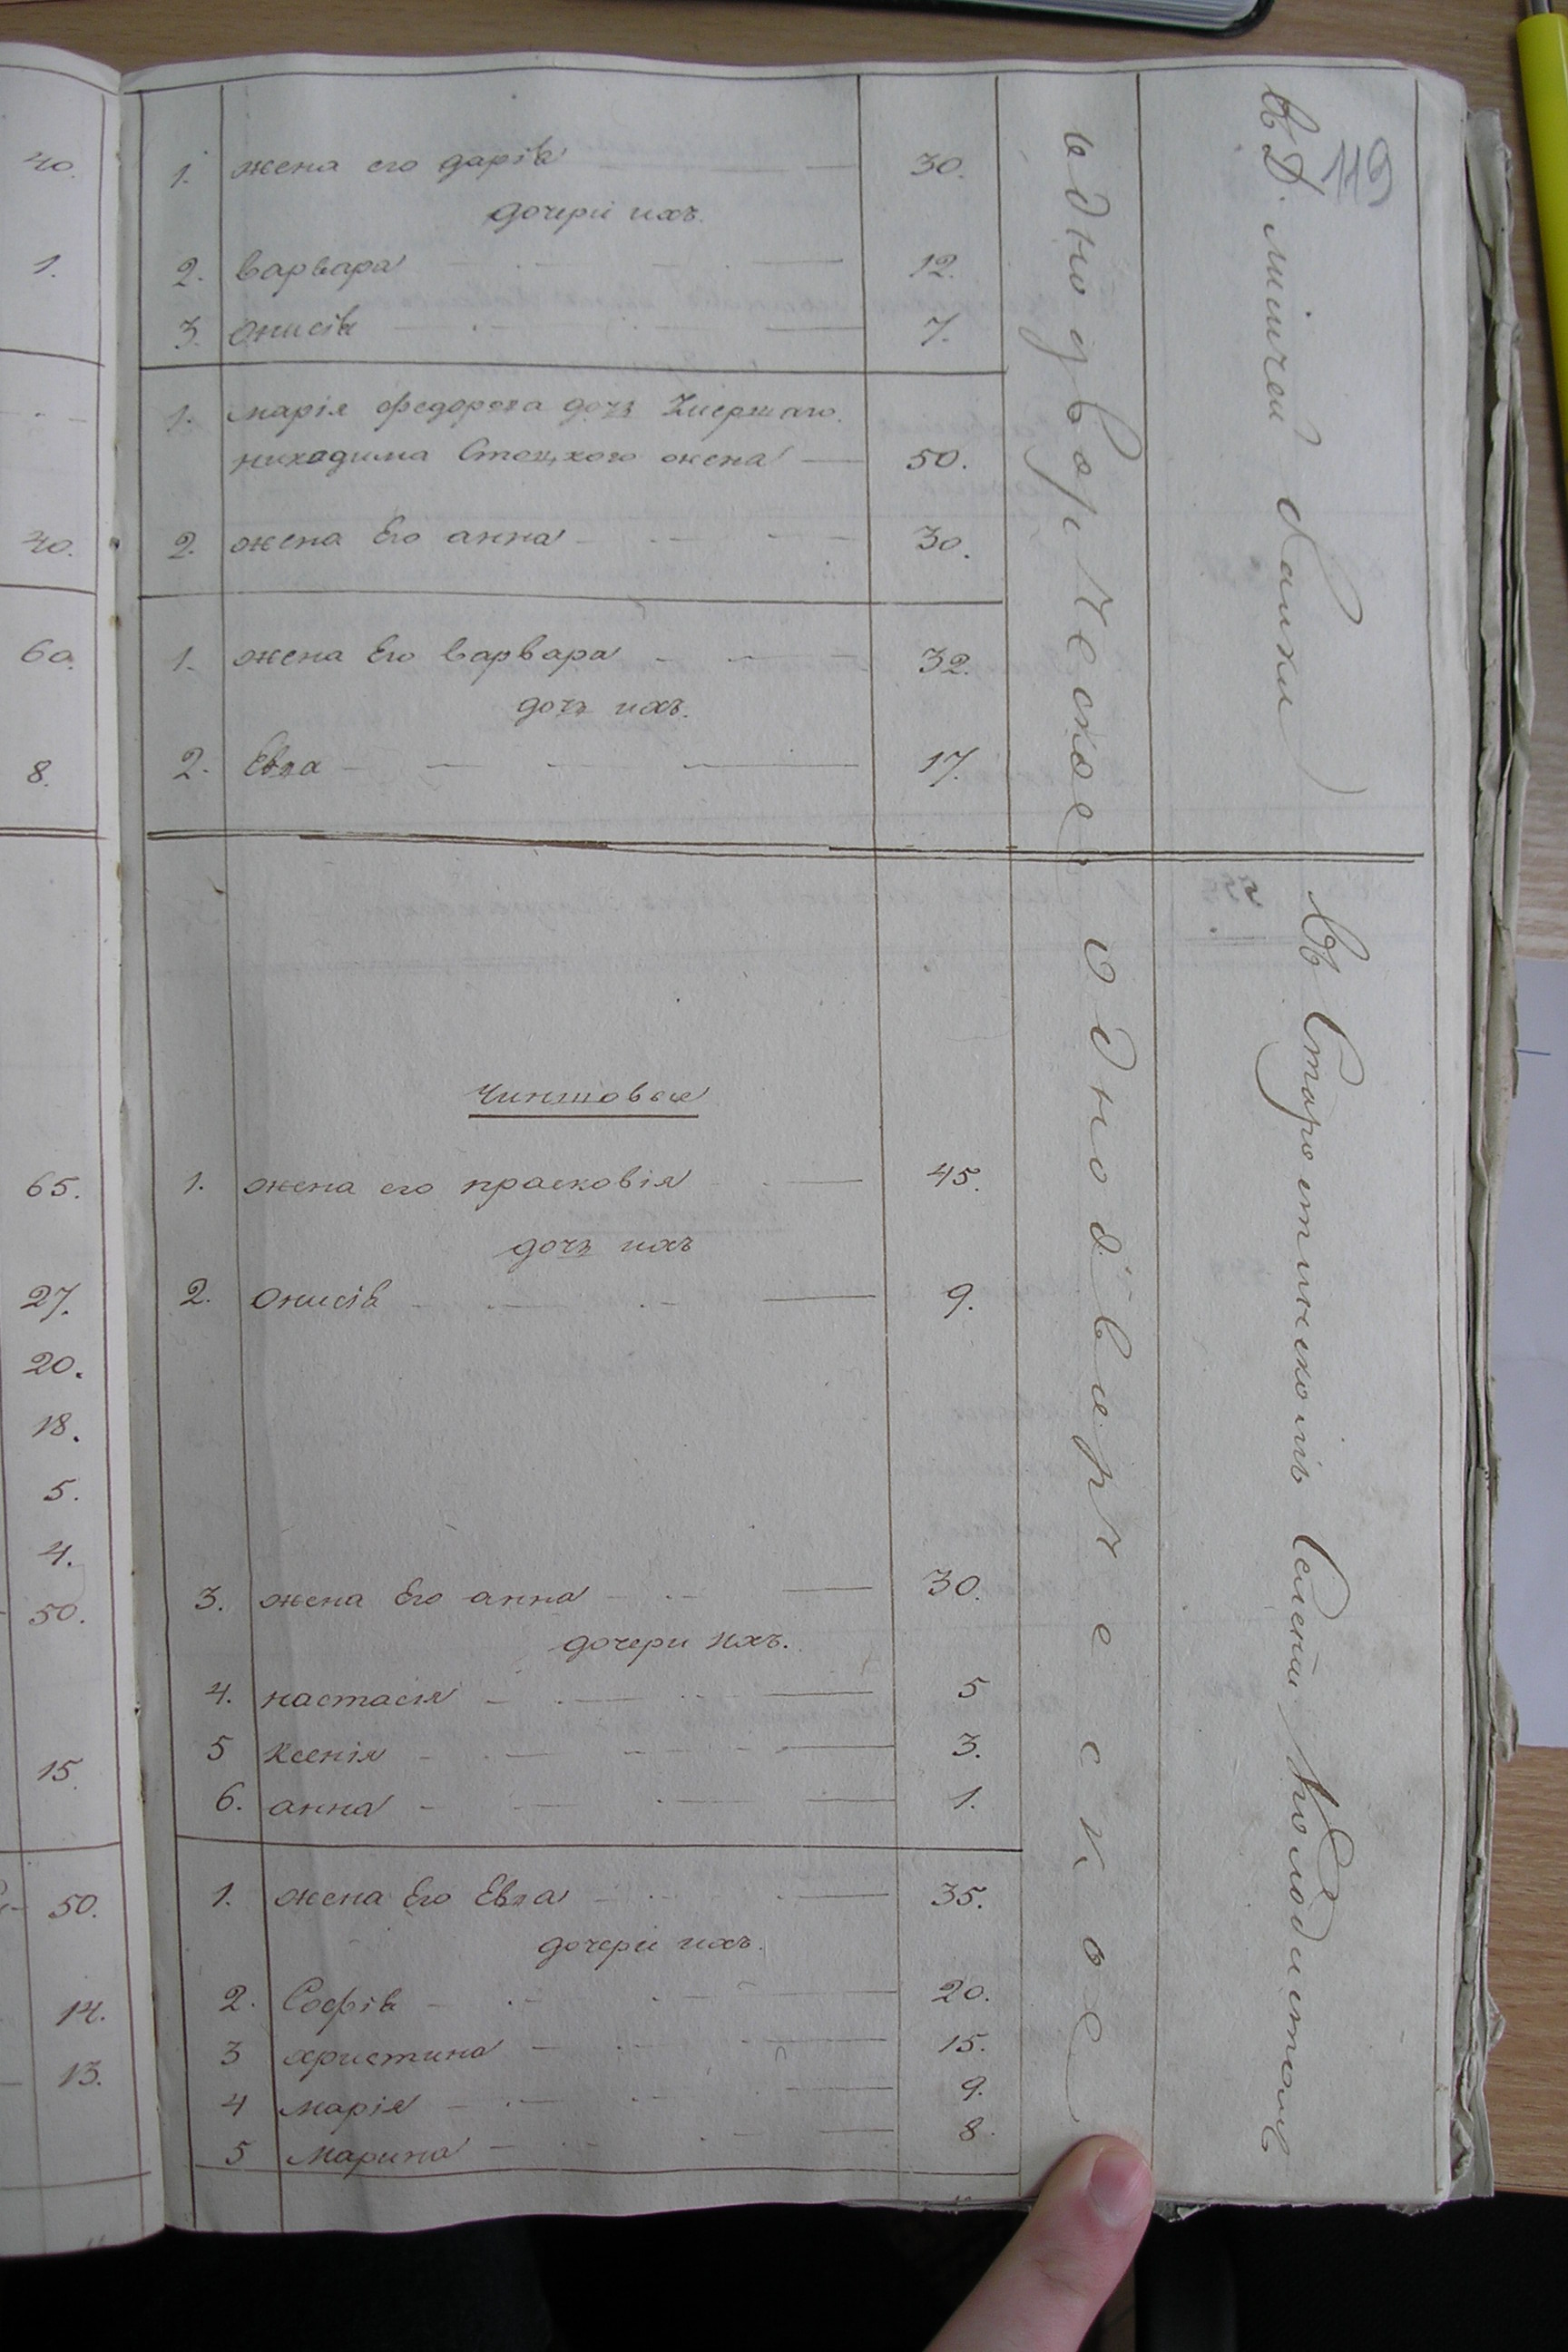 119
40.
1.
40.
60.
8.
65.
27.
20.
18.
5.
4.
50.
15.
50.
14.
13.
1. жена его дарія 30.
дочери ихъ.
2. варвара 12.
3. Онисія 7.
1. марія федорова дочь Умершаго
никодима Стоцкого жена 50.
2. жена Его анна 30.
1. жена Его варвара 32.
дочь ихъ.
2. Евва 17.
Чиншовые
1. жена его прасковія 45.
дочь ихъ
2. Онисія 9.
3. жена Его анна 30.
дочери ихъ.
4. настасія 5
5 Ксенія 3.
6. анна 1.
1. жена Его Евва 35.
дочери ихъ.
2. Софія 20.
3 христина 15.
4 марія 9.
5 Марина 8.
однодворческое
однодворческое
въ Старостинскомъ Селеніи